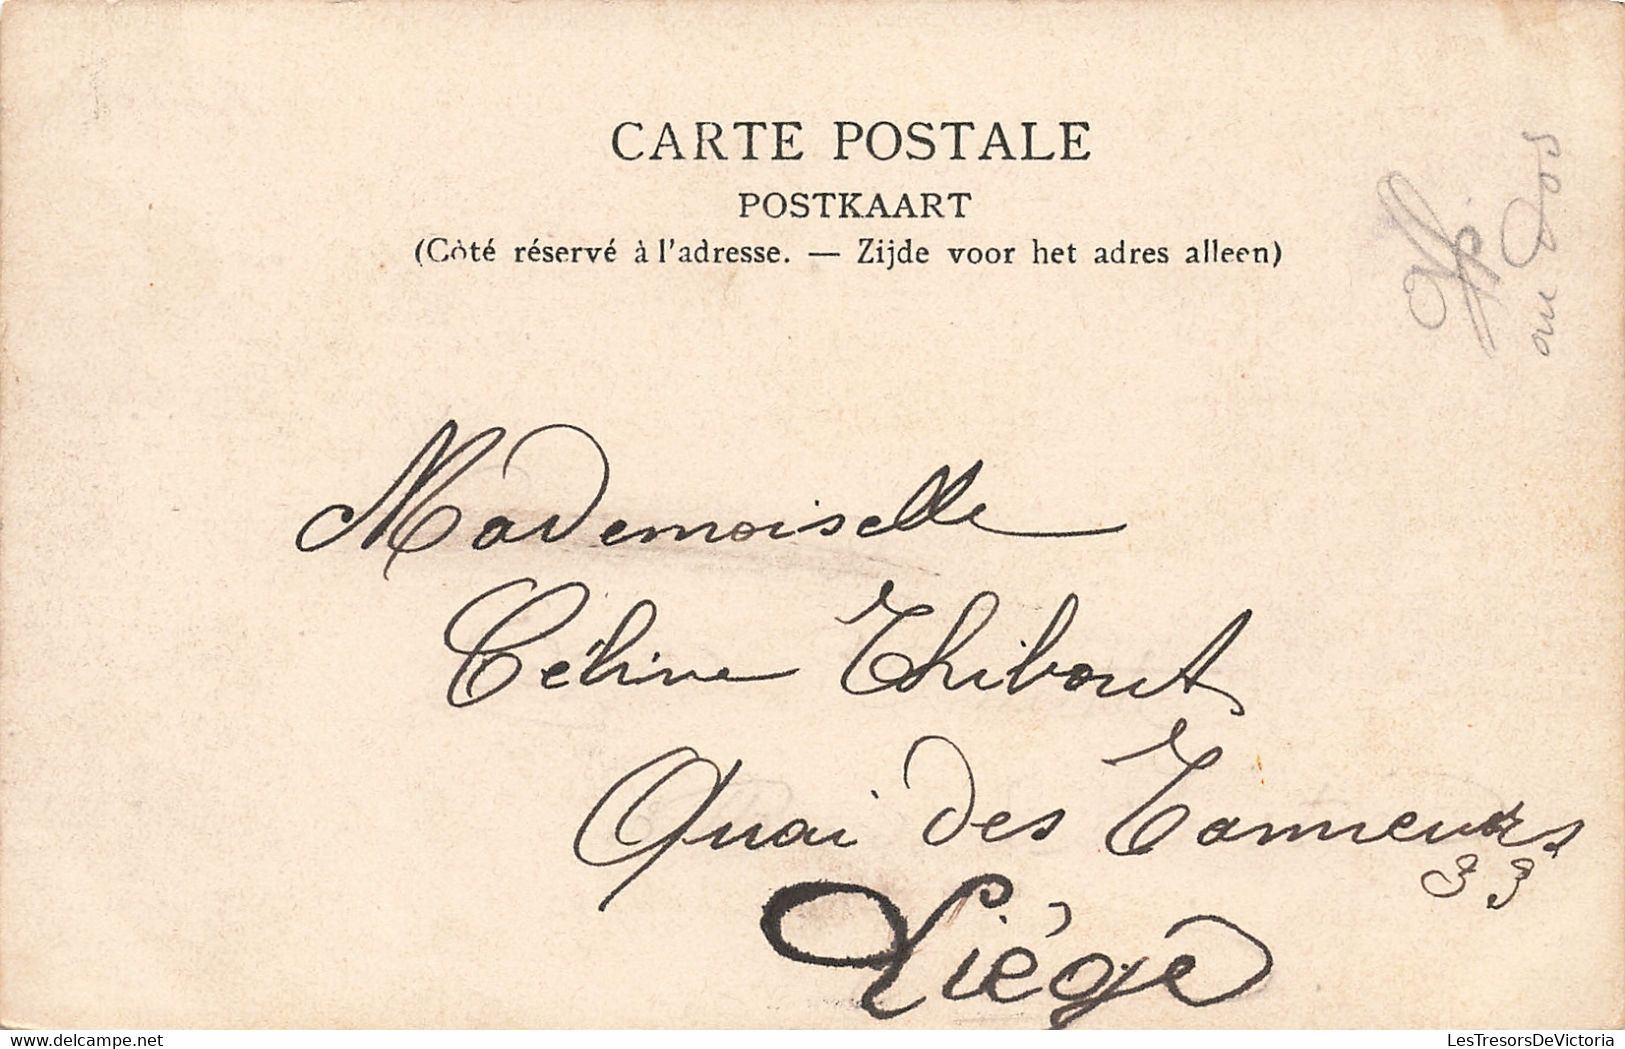 CARTE POSTALE
POSTKAART
(Côté réservé à l'adresse. — Zijde voor het adres alleen)
au Dos
Mademoiselle
Céline Thibout
Quai des Tanneurs
33
Liége
www.delcampe.net
LesTresorsDeVictoria